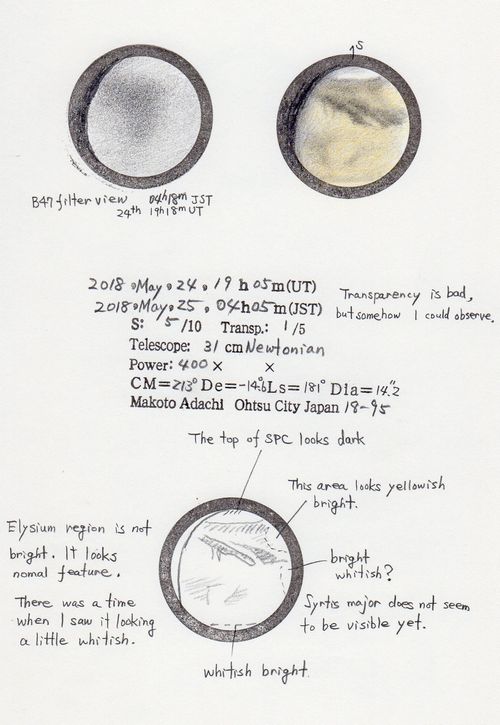 S
B47 filter view 04h18m JST
24th 19h18m UT
2018.May.24.19h05m(UT)
2018.May.25.04h05m(JST)
Transparency is bad,
but somehow I could observe.
S: 5/10 Transp.: 1/5
Telescope: 31 cm Newtonian
Power: 400 × ×
CM=213° De=-14.6° Ls=181° Dia=14".2
Makoto Adachi Ohtsu City Japan 18-95
The top of SPC looks dark
This area looks yellowish
bright.
Elysium region is not
bright. It looks
nomal feature.
bright
whitish?
There was a time
when I saw it looking
a little whitish.
Syrtis major does not seem
to be visible yet.
whitish bright.